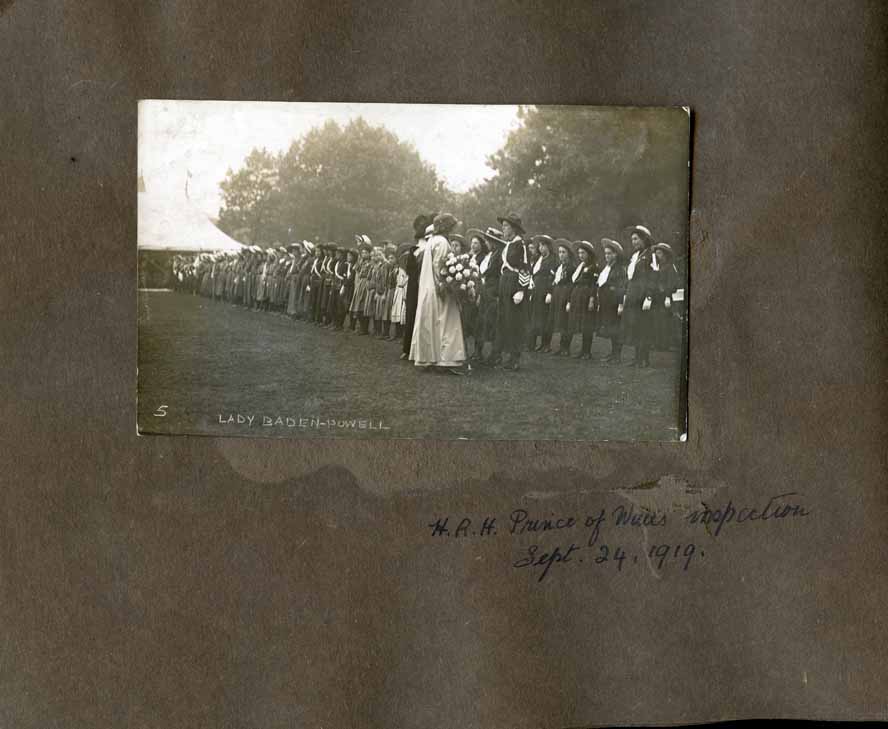 5
LADY BADEN-POWELL
H.R.H. Prince of Wales inspection
Sept. 24, 1919.